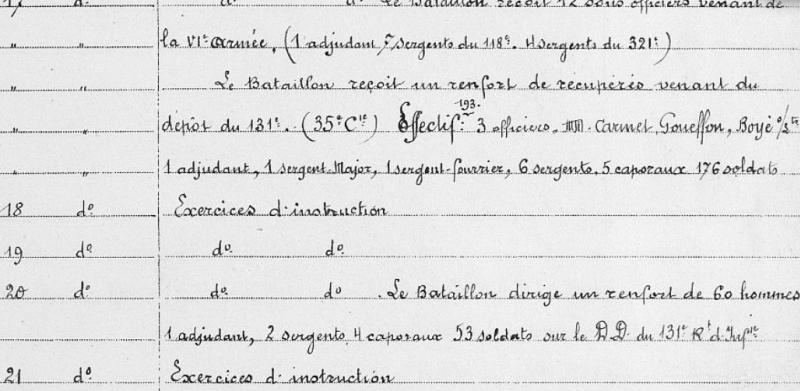 17 do do do Le Bataillon reçoit 12 sous officiers venant de
" " la VIe Armée, (1 adjudant, 7 sergents du 118e. 4 sergents du 321e)
" " Le Bataillon reçoit un renfort de récupérés venant du
193.
" " dépôt du 131e. (35e Cie) Effectif: 3 officiers. MM. Carmet, Goueffon, Boyé s/Lts
" " 1 adjudant, 1 sergent-Major, 1 sergent-fourrier, 6 sergents. 5 caporaux 176 soldats
18 do Exercices d'instruction
19 do do. do.
20 do do. do . Le Bataillon dirige un renfort de 60 hommes
1 adjudant, 2 sergents, 4 caporaux 53 soldats sur le D.D. du 131e Rt d'Infrie
21 do Exercices d'instruction